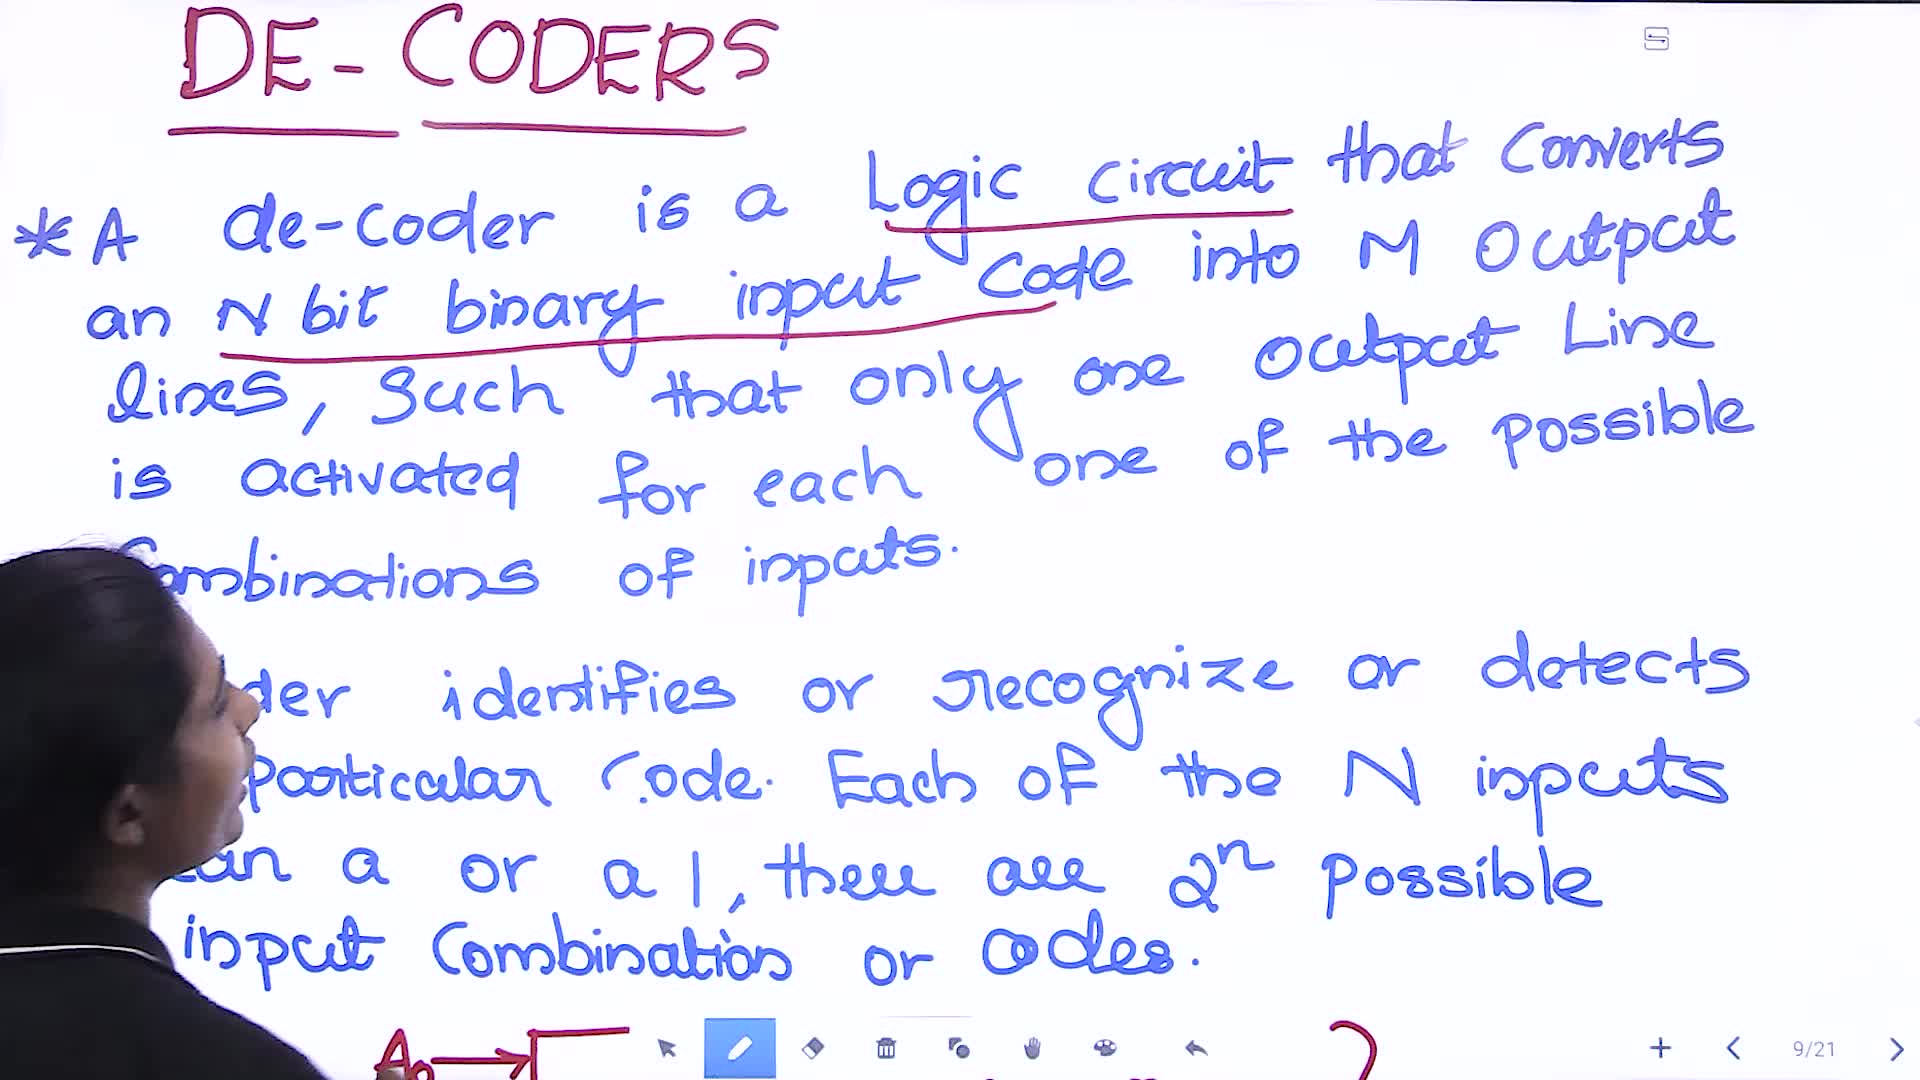 DE-CODERS
*A de-coder is a Logic circuit that converts
an N bit binary input code into M output
lines, such that only one output Line
is activated for each one of the possible
combinations of inputs.
der identifies or recognize or detects
particular code. Each of the N inputs
can a or a 1, there are 2ⁿ possible
input combination or codes.
A₀
9/21